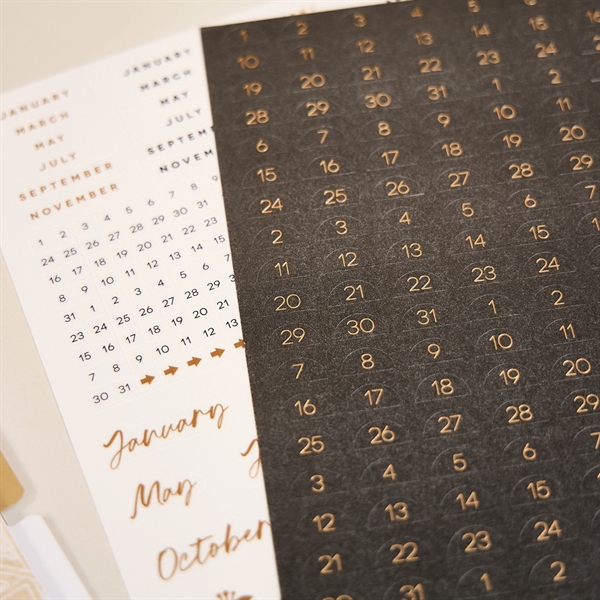 JANUARY
MARCH
MAY
JULY
SEPTEMBER
NOVEMBER
JANUARY
MARCH
MAY
JULY
SEPTEM
NOVEM
1 2 3 4 5 6 7 8 9
24 25 26 27 28 29 30 31
16 17 18 19 20 21 22 23
8 9 10 11 12 13 14 15
31 1 2 3 4 5 6 7
23 24 25 26 27 28 29 30
15 16 17 18 19 20 21
7 8 9 10 11 12 13
30 31
January
May
October
1 2 3 4 5 6
10 11 12 13 14 15
19 20 21 22 23 24
28 29 30 31 1 2
6 7 8 9 10 11
15 16 17 18 19 20
24 25 26 27 28 29
2 3 4 5 6 7
11 12 13 14 15
20 21 22 23 24
29 30 31 1 2
7 8 9 10 11
16 17 18 19 20
25 26 27 28 29
3 4 5 6 7
12 13 14 15
21 22 23 24
30 31 1 2